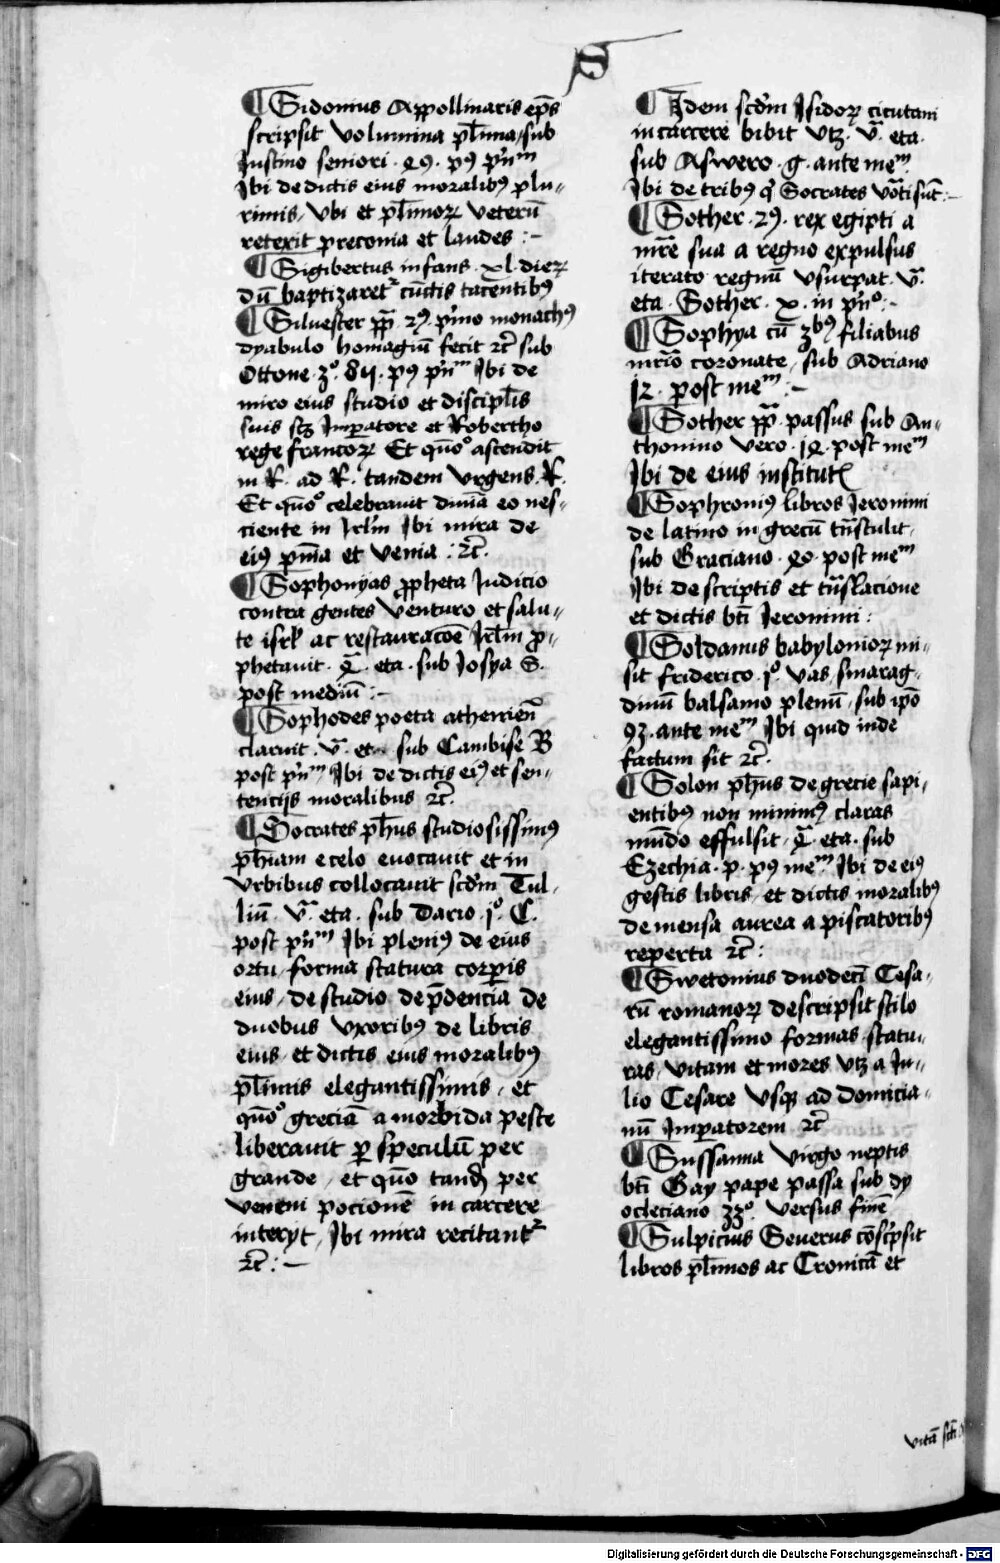 S
¶ Sidonius Appollinaris ep̄s
scripsit volumina pl̄ima / sub
Justino seniori · 29 · p9 p'nm
Ibi de dictis eius moralib9 plu-
rimis / vbi et pl̄imoꝝ veterū
retexit preconia et laudes :-
¶ Sigibertus infans · xl · dieꝝ
dū baptizaret᷑ cūctis tacentib9
¶ Siluester pp̄ 29 · p'mo monach9
dyabulo homagiū fecit ⁊c̄ sub
Ottone 3º · p9 p'nm Ibi de
miro eius studio et discipl̄is
suis scꝫ Imperatore et Robertho
rege francoꝝ Et quō ascendit
in R · ad R · tandem vrgens R ·
Et quō celebrauit diuīa eo nes-
ciente in Jrl̄m Ibi mira de
ei9 pn̄ia et venia · ⁊c̄ ·
¶ Sophonyas ꝓpheta Iudicio
contra gentes venturo et salu-
te isrl̄ ac restauracōe Jrl̄m ꝓ-
phetauit · eta · sub Josya S ·
post mediū :-
¶ Sophodes poeta athenieñ
claruit · v̄ · eta sub Cambise B
post p'nm Ibi de dictis ei9 et sen-
tencijs moralibus ⁊c̄ ·
¶ Socrates ph̄us studiosissim9
ph̄iam e celo euocauit et in
vrbibus collocauit scd̄m Tul-
liū · v̄ · eta · sub Dario · jº · C ·
post p'nm Ibi pleni9 de eius
ortu / forma statura corꝑis
eius / de studio de p̄dencia de
duobus vxorib9 de libris
eius et dictis eius moralib9
pl̄imis elegantissimis / et
quō greciā a morbida peste
liberauit ꝑ speculū per
grande / et quō tandē per
veneni pocionē in carcere
interijt / Ibi mira recitant᷑
⁊c̄ :-
¶ Idem scd̄m Isidoꝝ cicutam
in carcere bibit vtꝫ · v̄ · eta ·
sub Aswero · g · ante mem
Ibi de trib9 q̄ Socrates
¶ Sother · 29 · rex egipti a
mr̄e sua a regno expulsus
iterato regnū vsurpat · v̄ ·
eta · Sother · x · in p'nº :-
¶ Sophya cū 3b9 filiabus
coronate / sub Adriano
12 · post mem :-
¶ Sother pp̄ passus sub An-
thonino vero · 12 · post mem
Ibi de eius institut
¶ Sophroni9 libros Jeronimi
de latino in grecū tn̄stulit
sub Graciano · post mem
Ibi de scriptis et tn̄slacione
et dictis bt̄i Jeronimi :
¶ Soldanus babylonioꝝ mi-
sit friderico · jº · vas smarag-
dinū balsamo plenū / sub ip̄o
93 · ante mem Ibi quid inde
factum sit ⁊c̄ ·
¶ Solon ph̄us de grecie sapi-
entib9 non minim9 claras
mūdo effulsit / eta · sub
Ezechia · p · p9 mem Ibi de ei9
gestis libris / et dictis moralib9
de mensa aurea a piscatorib9
reperta ⁊c̄ :
¶ Swetonius duodeci Cesa-
rū romanoꝝ descripsit stilo
elegantissimo formas statu-
ras / vitam et mores vtꝫ a Ju-
lio Cesare vsqꝫ ad domicia-
nū Imperatorem ⁊c̄
¶ Sussanna virgo neptis
bt̄i Gay pape passa sub dy
ocleciano 33º · versus finē
¶ Sulpicius Seuerus cōsc'psit
libros pl̄imos ac Cronicā et
vitā sct̄i
Digitalisierung gefördert durch die Deutsche Forschungsgemeinschaft - DFG